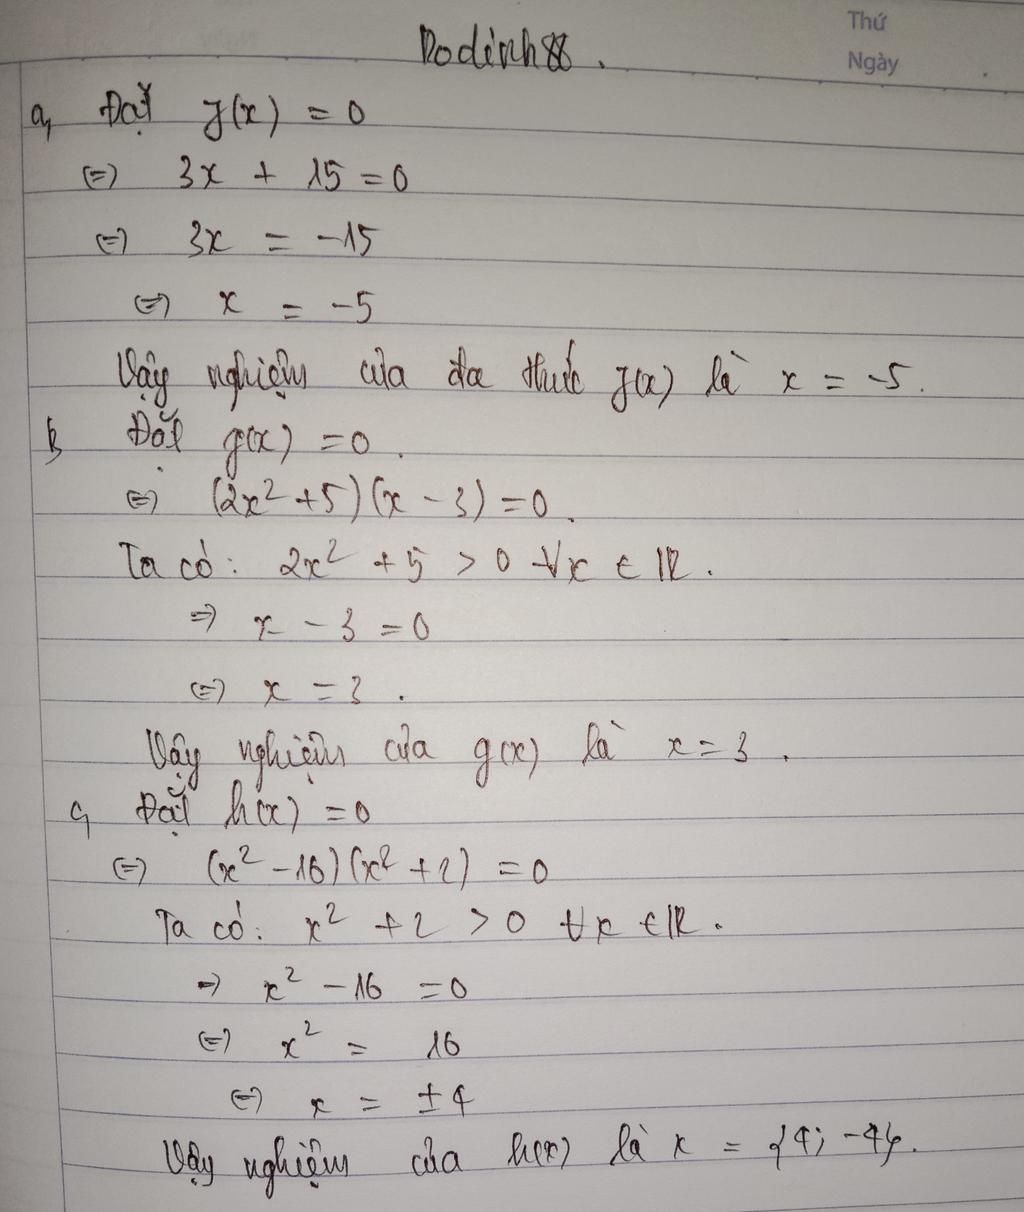 Dodinh88.
Thứ
Ngày
a, Đặt f(x) = 0
(=) 3x + 15 = 0
(=) 3x = -15
(=) x = -5
Vậy nghiệm của đa thức f(x) là x = -5.
b, Đặt g(x) = 0.
(=) (2x² + 5)(x - 3) = 0.
Ta có: 2x² + 5 > 0 ∀x ∈ R.
=) x - 3 = 0
(=) x = 3.
Vậy nghiệm của g(x) là x = 3.
c, Đặt h(x) = 0
(=) (x² - 16)(x² + 2) = 0
Ta có: x² + 2 > 0 ∀x ∈ R.
=) x² - 16 = 0
(=) x² = 16
(=) x = ±4
Vậy nghiệm của h(x) là x = {4; -4}.